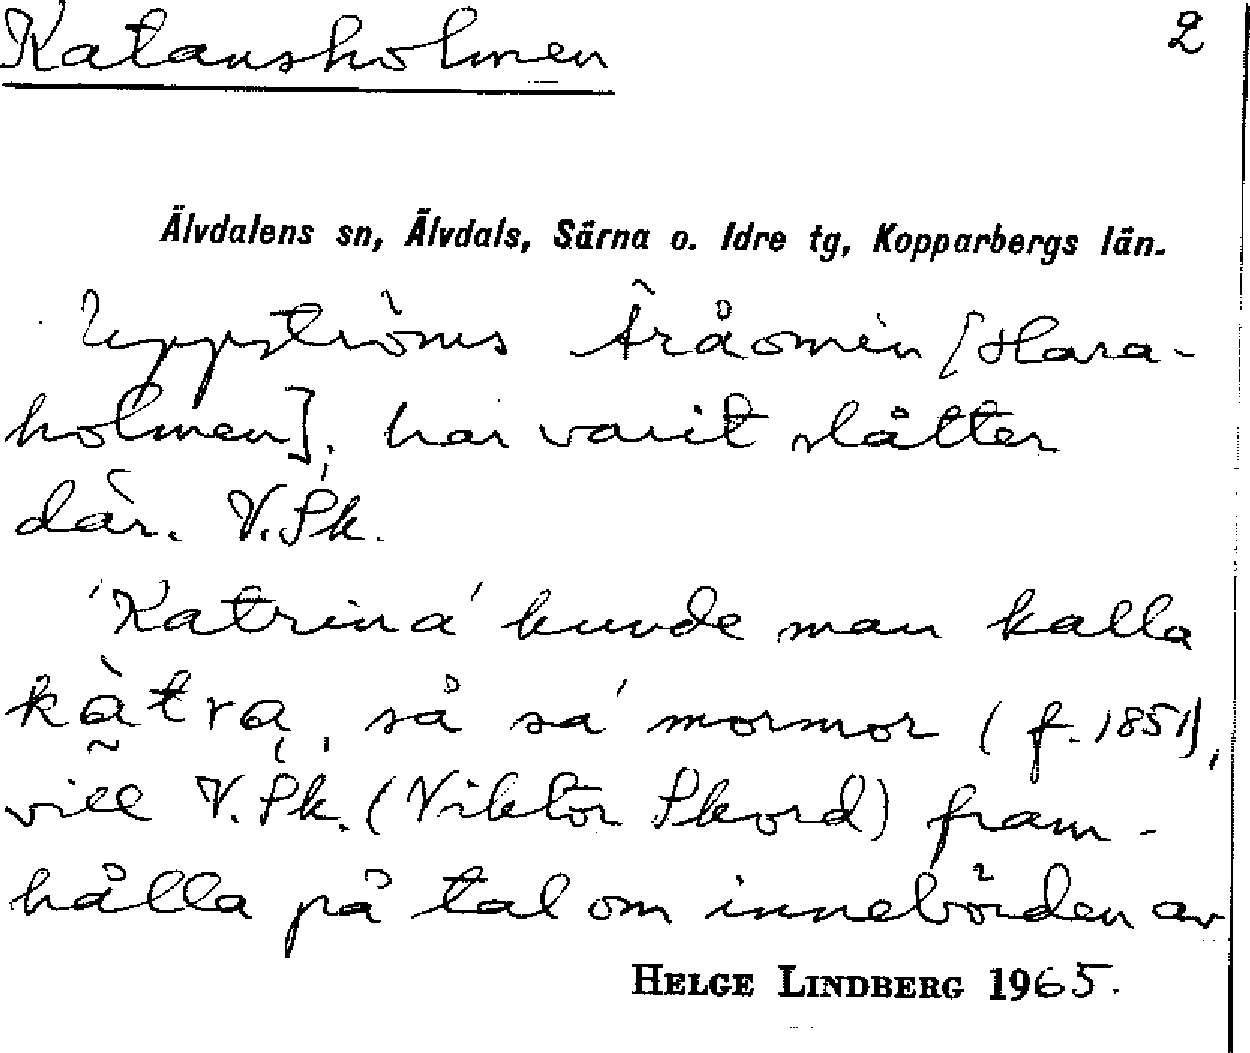 Katansholmen 2
Älvdalens sn, Älvdals, Särna o. Idre tg, Kopparbergs län.
Uppströms [Hara-
holmen], har varit slåtter
där. V.Sk.
'Katrina' kunde man kalla
kàtra, så sa' mormor (f. 1851),
vill V.Sk. (Viktor Skord) fram-
hålla på tal om innebörden av
HELGE LINDBERG 1965.